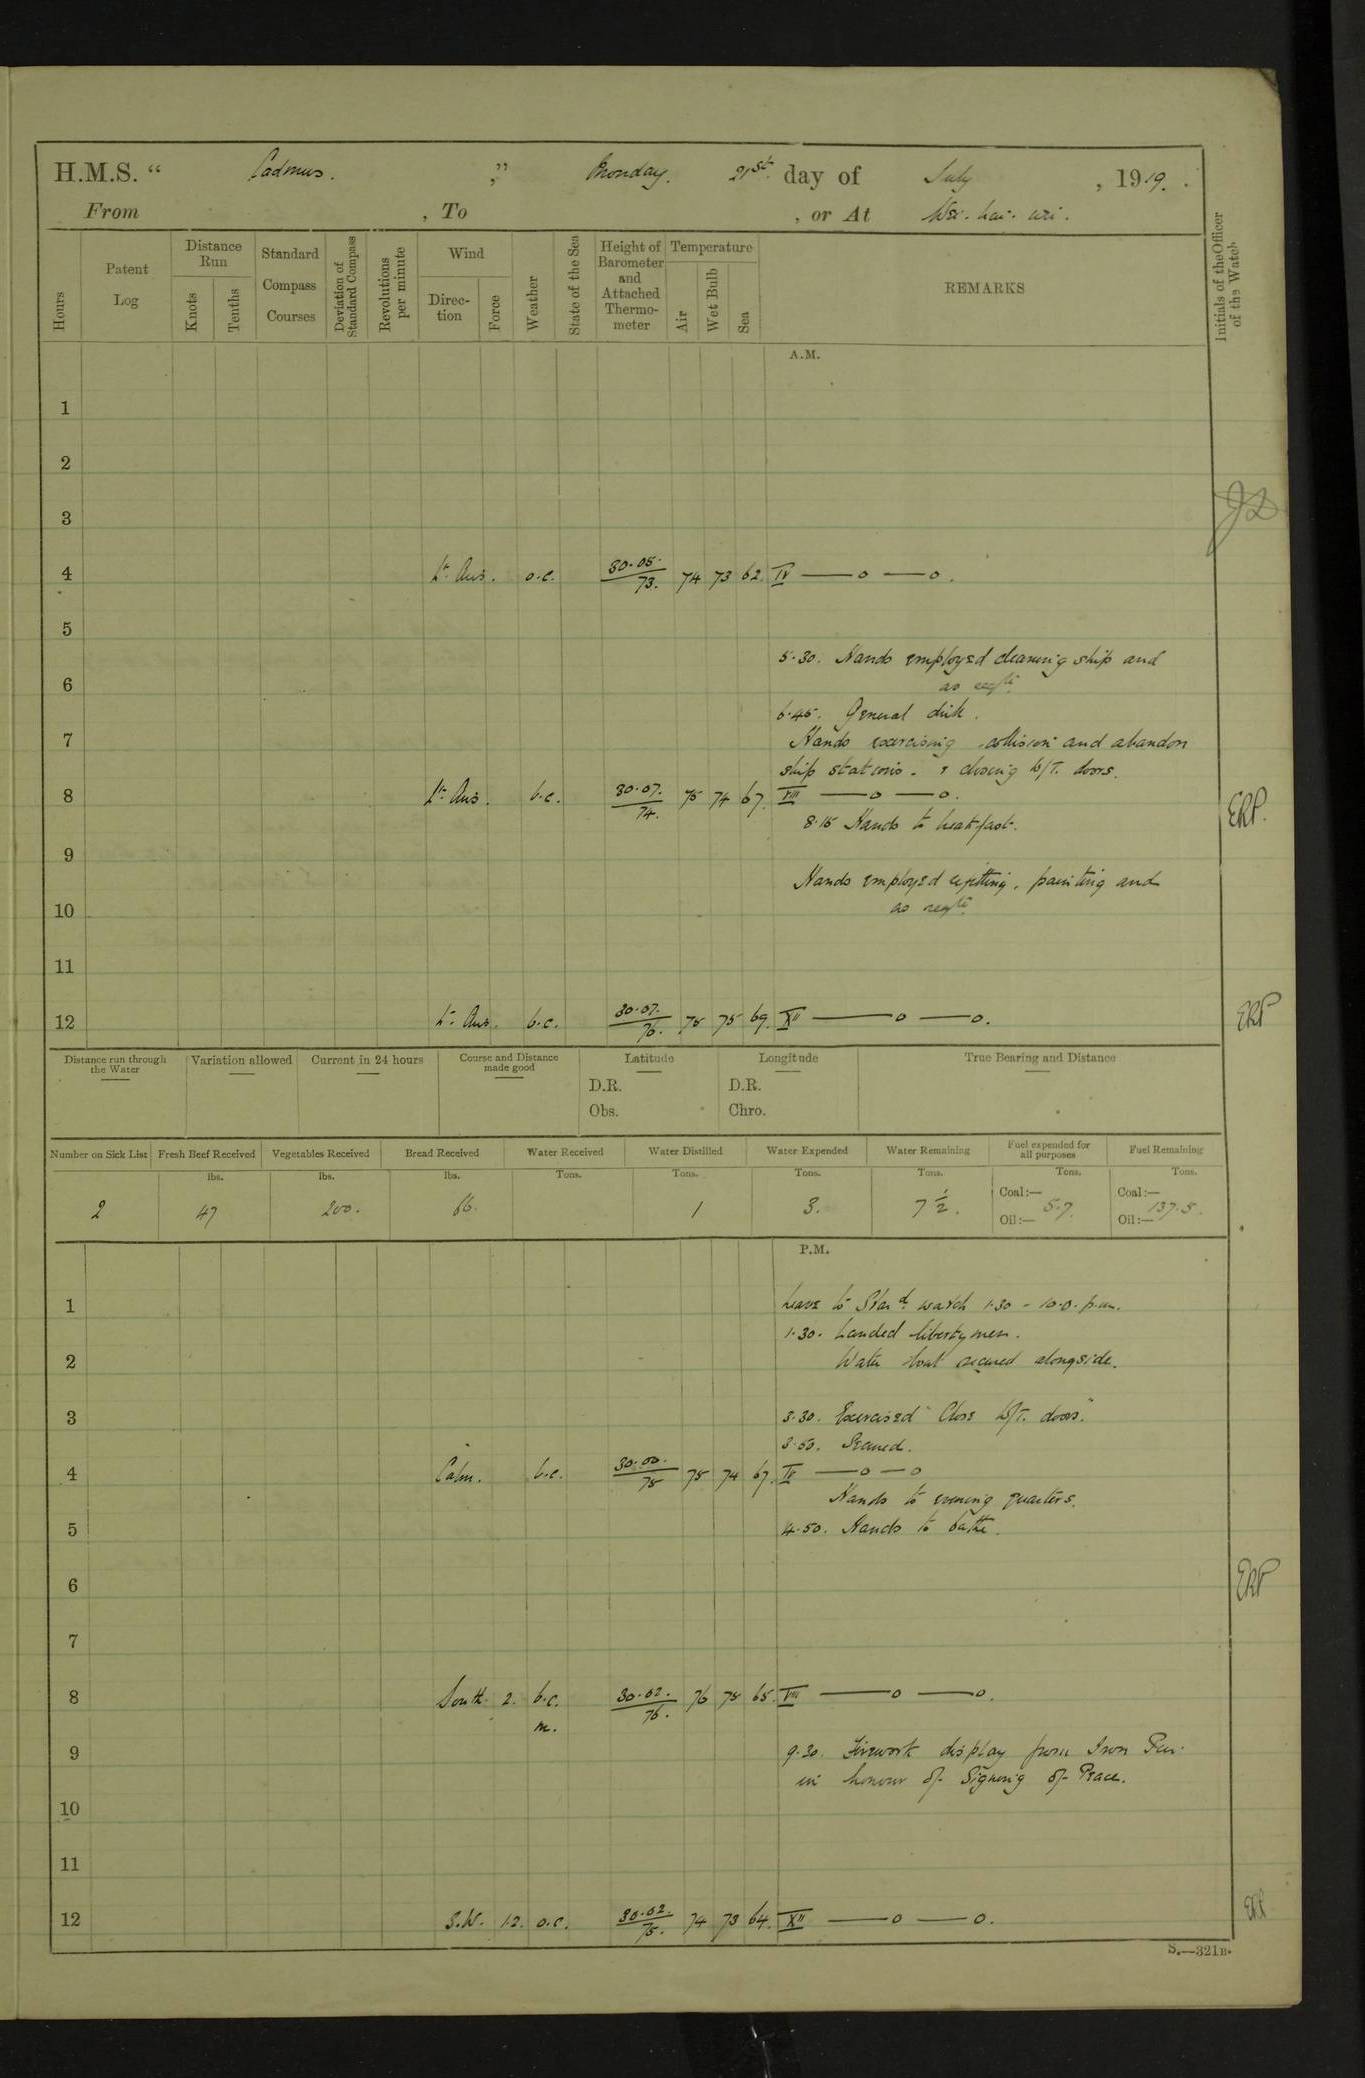 H.M.S. “ Cadmus. ,” Monday. 21st day of July , 1919.
From , To , or At Wei-hai-wei.
Hours
Patent Log
Distance Run
Knots
Tenths
Standard Compass Courses
Deviation of Standard Compass
Revolutions per minute
Wind
Direction
Force
Weather
State of the Sea
Height of Barometer and Attached Thermometer
Temperature
Air
Wet Bulb
Sea
REMARKS
Initials of the Officer of the Watch
A.M.
1
2
3
4 Lt. Airs. o.c. 30.05. 73. 74 73 62. IV —o —o.
5
5.30. Hands employed cleaning ship and
6 as reqte.
6.45. General drill.
7 Hands exercising collision and abandon
ship stations. & closing W/T. doors.
8 Lt. Airs. b.c. 30.07. 74. 75 74 67. VIII —o —o. ERP.
8.15 Hands to breakfast.
9
Hands employed refitting, painting and
10 as reqte.
11
12 Lt. Airs. b.c. 30.07. 76. 78 75 69. XII —o —o. ERP
Distance run through the Water
Variation allowed
Current in 24 hours
Course and Distance made good
Latitude
D.R.
Obs.
Longitude
D.R.
Chro.
True Bearing and Distance
Number on Sick List
Fresh Beef Received
Vegetables Received
Bread Received
Water Received
Water Distilled
Water Expended
Water Remaining
Fuel expended for all purposes
Fuel Remaining
lbs. lbs. lbs. Tons. Tons. Tons. Tons. Tons. Tons.
2 47 200. 66. 1 3. 7 ½. Coal:— Oil:— 5.7. Coal:— Oil:— 137.5.
P.M.
1 Leave to Stard. watch 1.30 - 10.0. p.m.
1.30. Landed liberty men.
2 Water boat secured alongside.
3 3.30. Exercised "Close W/T. doors."
3.50. Secured.
4 Calm. b.c. 30.00. 78 78 74 67. IV —o —o
Hands to evening quarters.
5 4.50. Hands to bathe.
6 ERP
7
8 South. 2. b.c. m. 30.02. 76. 76 75 65. VIII —o —o.
9 9.30. Firework display from Iron Pier.
in honour of Signing of Peace.
10
11
12 S.W. 1.2. o.c. 30.02. 75. 74 73 64. XII —o —o. ERP
S.—321B.